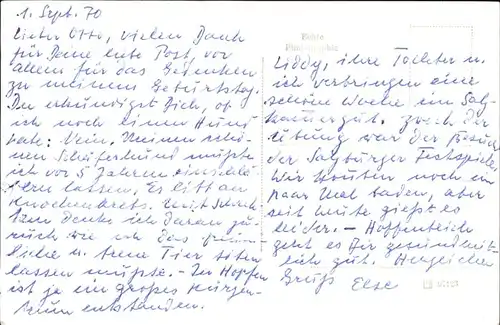 1. Sept. 70
Lieber Otto, vielen Dank
für Deine liebe Post, vor
allem für das Gedenken
zu meinem Geburtstag.
Du erkundigst Dich, ob
ich noch einen Hund
habe: Nein. Meinen schö-
nen Schäferhund mußte
ich vor 5 Jahren einschlä-
fern lassen. Es litt an
Knochenkrebs. Mit Schrek-
ken denke ich daran zu-
rück wie ich das
liebe u. treue Tier töten
lassen mußte. - In Hopfen
ist ja ein großes Kurzen-
trum entstanden.
Echte
Photographie
Liddy, ihre Tochter u.
ich verbringen eine
schöne Woche im Salz-
kammergut. Zweck der
Übung war der Besuch
der Salzburger Festspiele.
Wir konnten noch ein
paar Mal baden, aber
seit heute gießt es
leider. - Hoffentlich
geht es Dir gesundheit-
lich gut. Herzlichen
Gruß Else